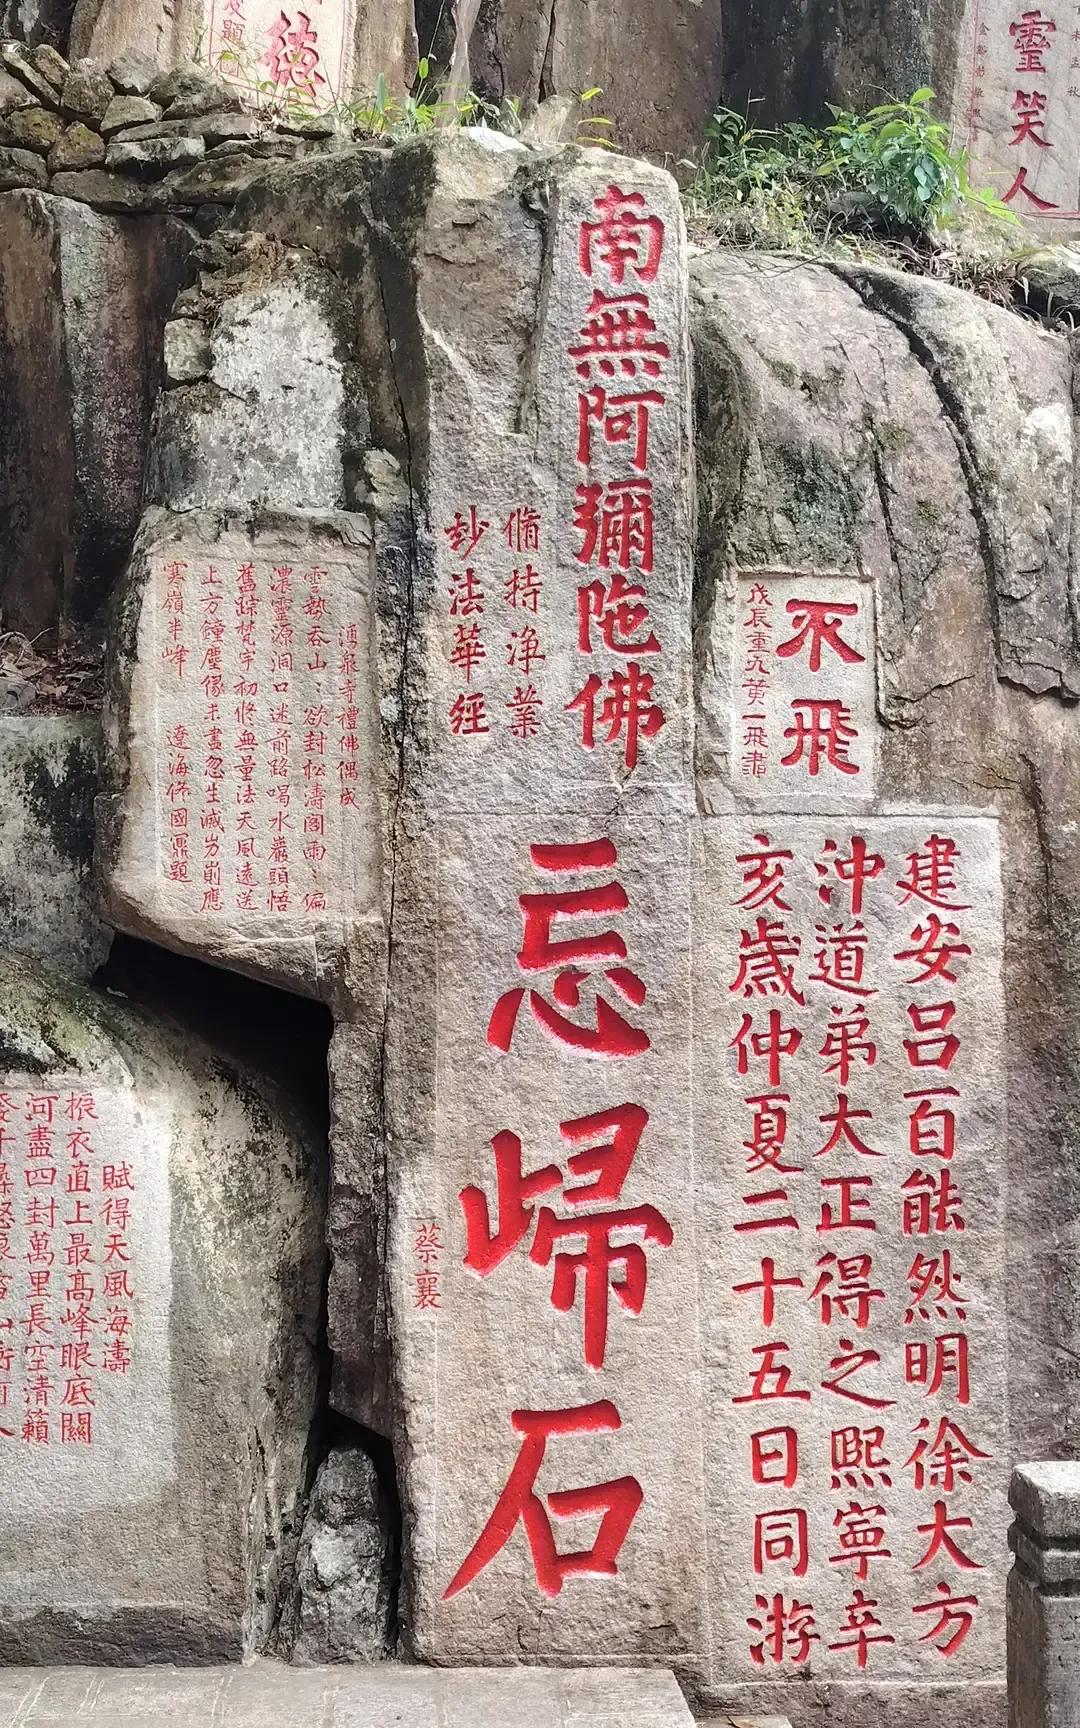 靈笑人
南無阿彌陀佛
脩持淨業
玅法華經
不飛
戊辰重九黄一飛書
忘歸石
蔡襄
建安吕百能然明徐大方
沖道弟大正得之熙寧辛
亥歲仲夏二十五日同游
湧泉寺禮佛偶成
雲埶吞山：欲封松濤閣雨：偏
濃靈源洞口迷前路喝水巖頭悟
舊踪梵宇初修無量法天風遠送
上方鐘塵像未盡忽生滅
寒嶺半峰 遼海佟國鼐題
賦得天風海濤
振衣直上最高峰眼底關
河盡四封萬里長空清籟